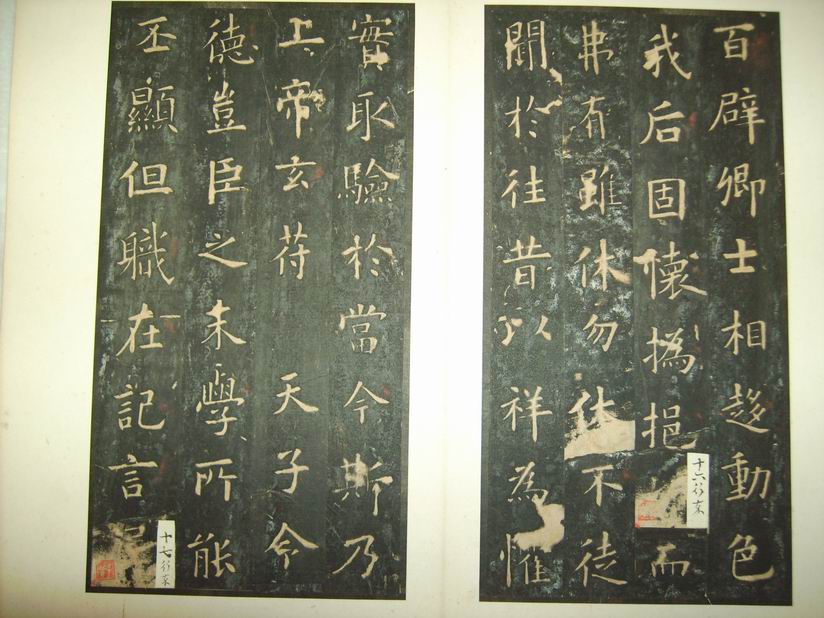 百辟卿士相趍動色
我后固懷撝挹
而
弗有雖休勿休不徒
聞於往昔以祥為惟
十六行
實取驗於當今斯乃
上帝玄苻 天子令
德豈臣之末學所能
丕顯但職在記言
十七行